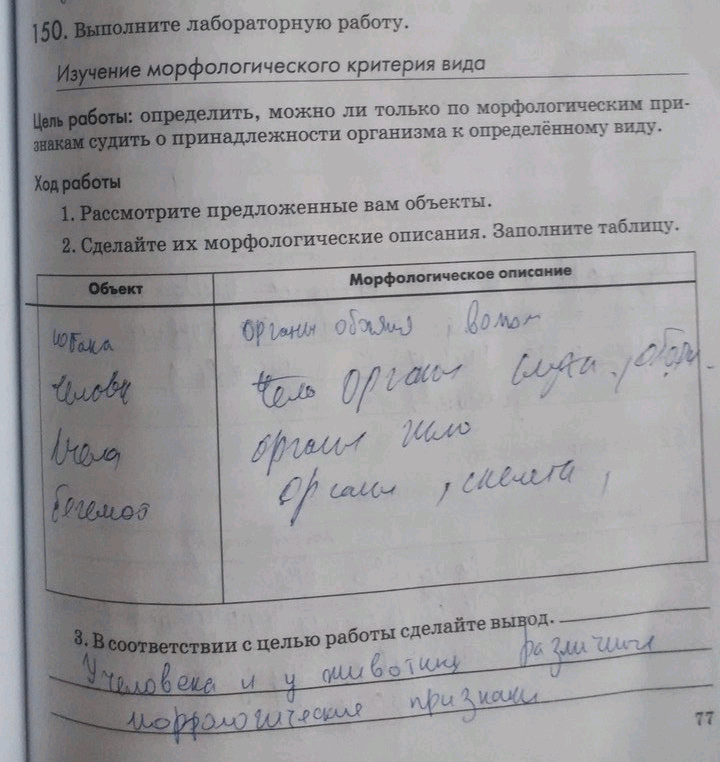 150. Выполните лабораторную работу.
Изучение морфологического критерия вида
Цель работы: определить, можно ли только по морфологическим при-
знакам судить о принадлежности организма к определённому виду.
Ход работы
1. Рассмотрите предложенные вам объекты.
2. Сделайте их морфологические описания. Заполните таблицу.
Объект Морфологическое описание
органы
органы слуха,
органы
Бегемот органы, скелета,
3. В соответствии с целью работы сделайте вывод.
У человека и у животных различные
морфологические признаки
77